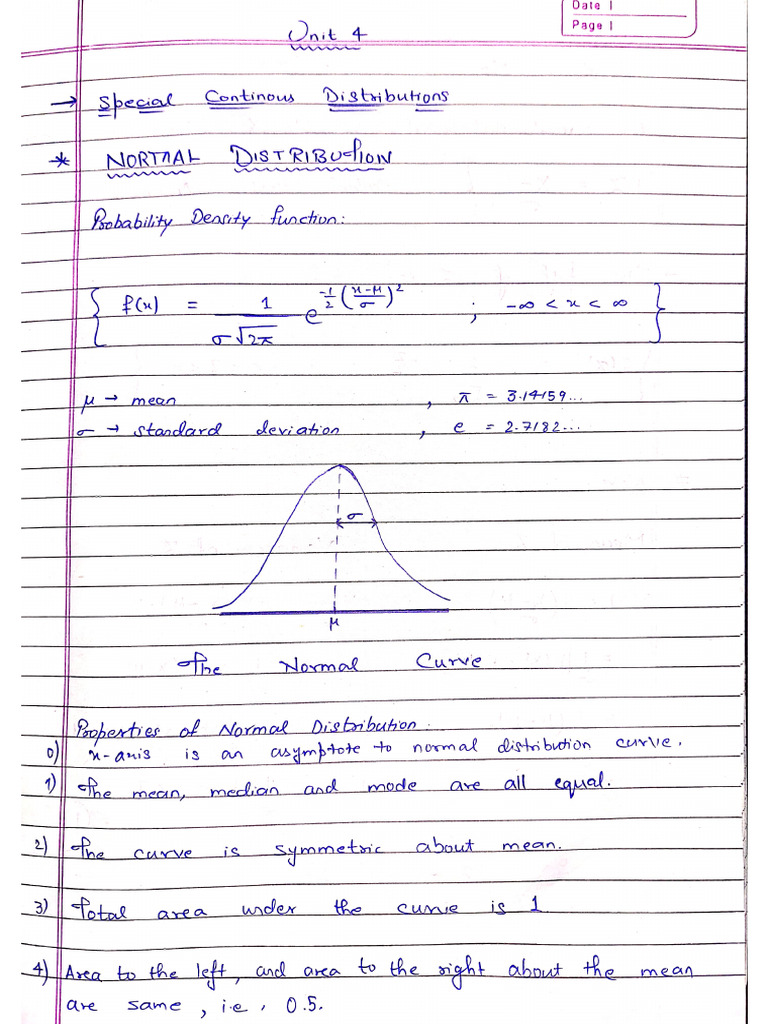 Date |
Page |
Unit 4
→ Special Continous Distributions
* NORMAL DISTRIBUTION
Probability Density function:
{ f(x) = 1/(σ√2π) e^(-1/2 ((x-μ)/σ)^2) ; -∞ < x < ∞ }
μ → mean , π = 3.14159...
σ → standard deviation , e = 2.7182...
σ
μ
The Normal Curve
Properties of Normal Distribution:
0) x-axis is an asymptote to normal distribution curve.
1) The mean, median and mode are all equal.
2) The curve is symmetric about mean.
3) Total area under the curve is 1
4) Area to the left, and area to the right about the mean
are same, i.e. 0.5.